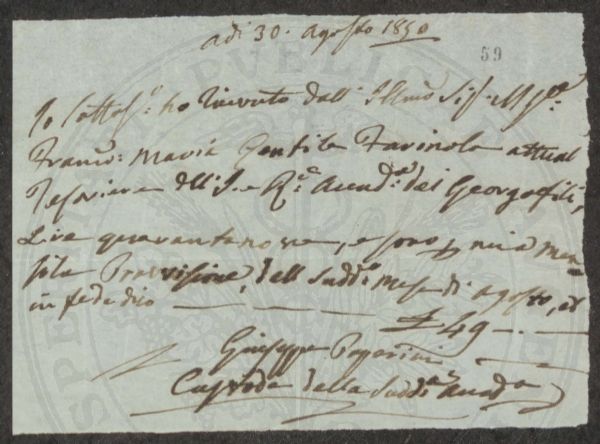 adì 30. Agosto 1850
59
Io Sottos:º ho ricevuto dall' Illmo Sig. M
Franco: Maria Gentile Farinola attual
Tesoriere dell' I. e R.e Accad.a dei Georgofili,
Lire quarantanove, e sono p mia Men=
sile Provvisione, dell Sudd.o Mese di Agosto, ed
in fede dico — — — — £ 49 — . —
Giuseppe
Custode della Sudd.a Accad.a